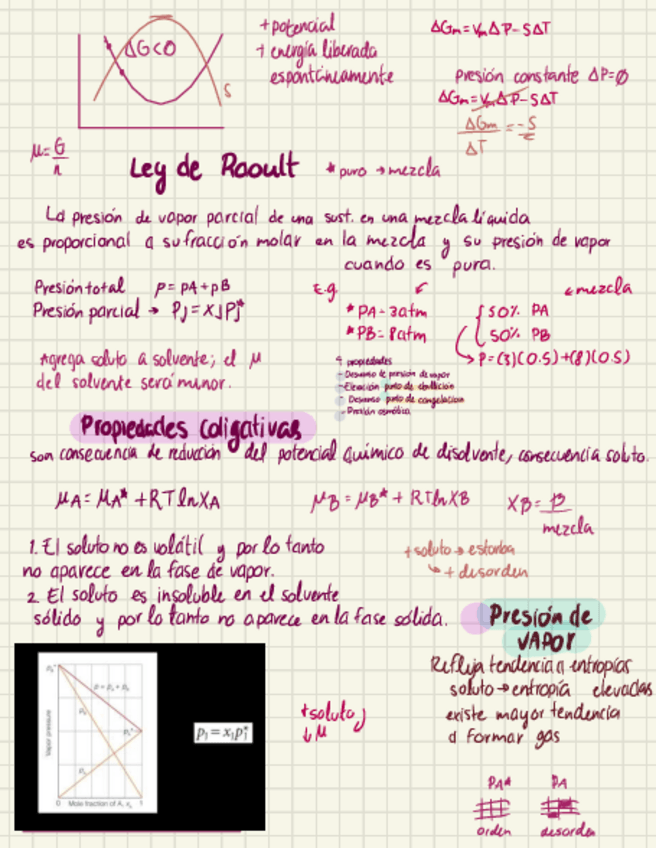 ΔG<0
S
+ potencial
+ energía liberada
espontáneamente
ΔGm = VmΔP-SΔT
Presión constante ΔP=∅
ΔGm = VmΔP-SΔT
ΔGm = -S
ΔT
μ = G
n
Ley de Raoult
* puro → mezcla
La presión de vapor parcial de una sust. en una mezcla líquida
es proporcional a su fracción molar en la mezcla y su presión de vapor
cuando es pura.
Presión total P = PA + PB
Presión parcial → PJ = XJ PJ*
E.g.
* PA - 3atm
* PB = 8atm
← mezcla
50% PA
50% PB
P = (3)(0.5)+(8)(0.5)
Agrega soluto a solvente; el μ
del solvente será menor.
4 propiedades
- Descenso de presión de vapor
- Elevación punto de ebullición
- Descenso punto de congelacion
- Presión osmótica
Propiedades Coligativas
son consecuencia de reducción del potencial químico de disolvente, consecuencia soluto.
μA = μA* + RT ln XA
μB = μB* + RT ln XB
XB = B
mezcla
1. El soluto no es volátil y por lo tanto
no aparece en la fase de vapor.
2 El soluto es insoluble en el solvente
sólido y por lo tanto no aparece en la fase sólida.
+ soluto → estorba
↳ + desorden
Presión de
VAPOR
Refleja tendencia a entropías
soluto → entropía elevadas
existe mayor tendencia
a formar gas
+ soluto;
↓ μ
p = pA + pB
pA*
pB*
pB
pA
Vapor pressure
0 Mole fraction of A, xA 1
pJ = xJ pJ*
PA* PA
orden desorden